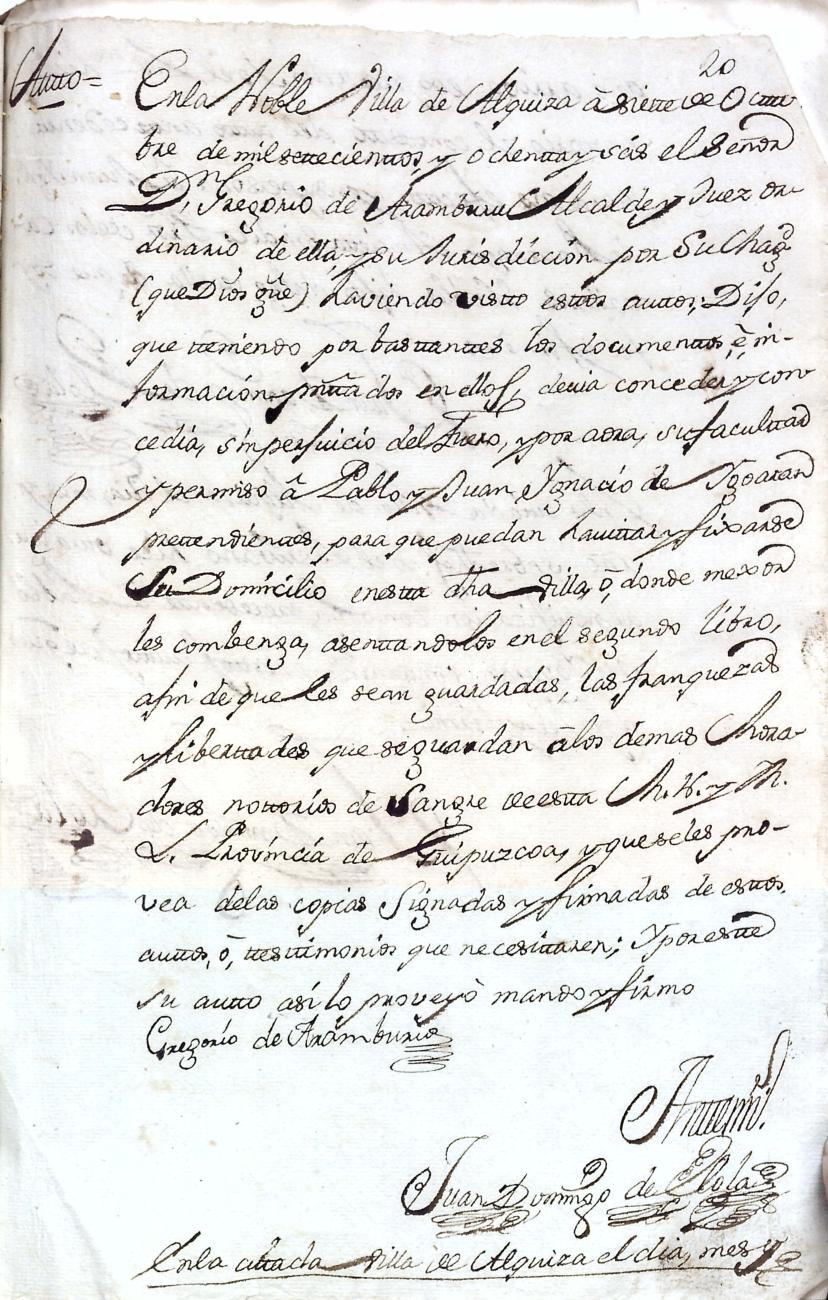 20
Autto=
En la Noble Villa de Alquiza â siette de Octtu-
bre de mil settecienttos, y ochentta y seis el Señor
D.n Gregorio de Aramburu Alcalde y Juez or-
dinario de ella, y su Jurisdicción por Su Magd
(que Dios gũe) haviendo visto esttos auttos, Dijo,
que tteniendo por basttanttes los documenttos, ê in-
formación pnttados en ellos, devia conceder, y con-
cedia, sin perjuicio del Fuero, y por aora, su faculttad
y permiso â Pablo y Juan Ygnacio de Ygoaran
prettendienttes, para que puedan havittar y fixar se
Su Domicilio en estta dha Villa, ô, donde mexor
les combenga, asenttandolos en el segundo libro,
afin de que les sean guardadas, las franquezas
y liberttades que se guardan âlos demas Mora-
dores nottorios de Sangre de estta M. N. y M.
L. Provincia de Guipuzcoa, y que se les pro-
vea delas copias Signadas y firmadas de esttos
auttos, ô, ttesttimonios que necesittaren; Y por estte
su autto así lo proveyò mando y firmo
Gregorio de Aramburu
Anttemi.
Juan Domingo de Elola
En la cittada Villa de Alquiza el dia, mes y